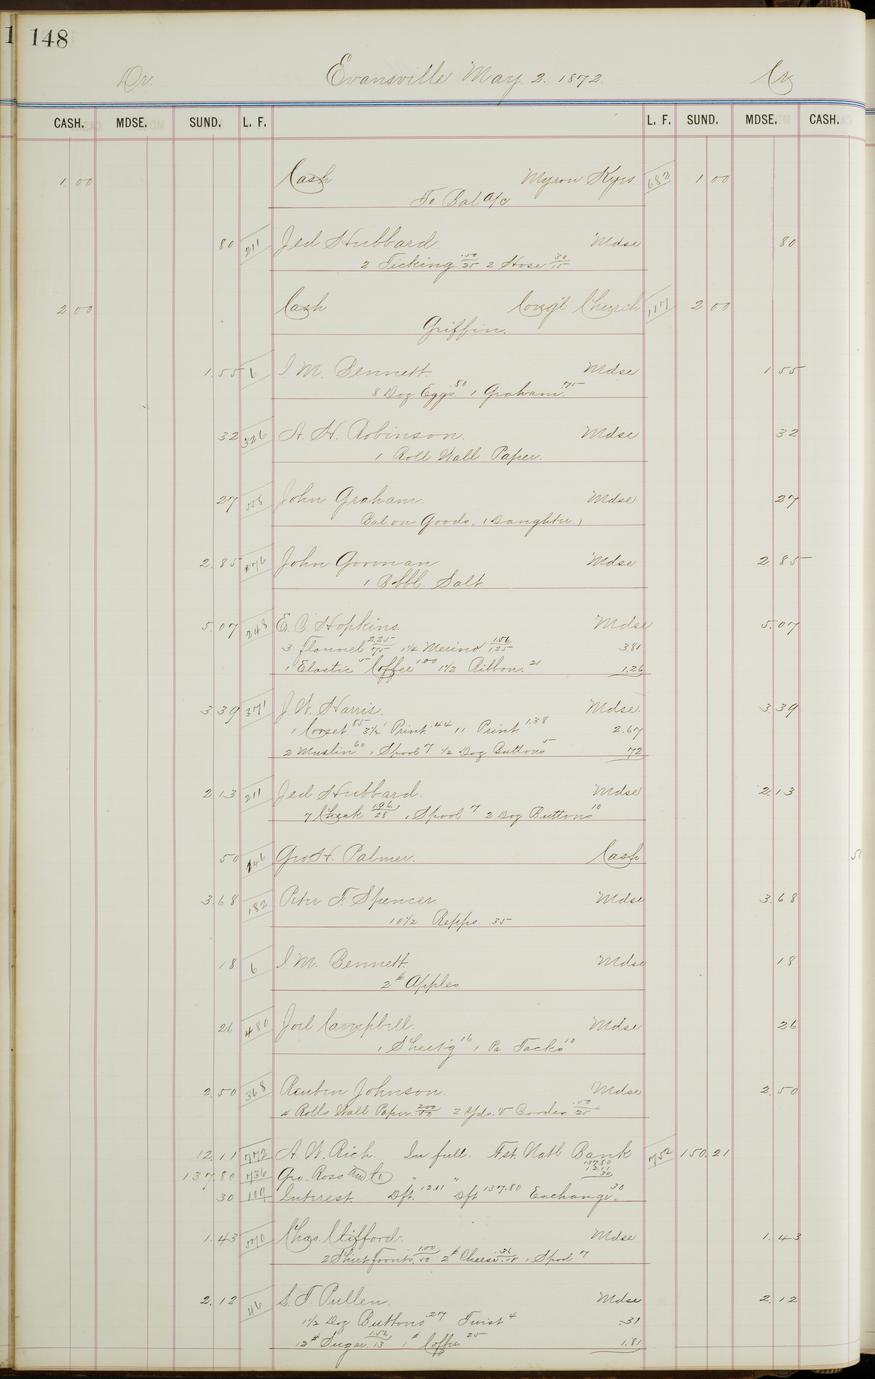 148
Dr. Evansville May 2. 1872 Cr
CASH. MDSE. SUND. L. F. L. F. SUND. MDSE. CASH.
1 00 Cash Myron 1 00
To Bal a/c
80 211 Jed Hubbard Mdse 80
2 Ticking 50/25 2 Hose 30/15
2 00 Cash Cong'l Church 117 2 00
Griffin.
1.55 6 I M. Bennett Mdse 1 55
8 Doz Eggs 80 1 Graham 75
32 326 A. H. Robinson. Mdse 32
1 Roll Wall Paper.
27 John Graham. Mdse 27
Bal on Goods. (Daughter)
2.85 John Gorman Mdse 2 85
1 Bbl. Salt
5.07 243 E. C. Hopkins. Mdse 5.07
3 Flannel 2.25/75 1¼ Merino 1.56/125 3 81
1 Elastic 5 Coffee 1.00 1½ Ribbon. 21 1.26
3 39 371 J. W. Harris. Mdse. 3 39
1 Corset 85 3½ Print .44 11 Print 1.38 2.67
2 Muslin 60 1 Spool 7 ½ Doz Buttons 5 72
2.13 211 Jed Hubbard. Mdse 2.13
7 Check 1.96/28 1 Spool 7 2 Doz Buttons 10
50 Geo H. Palmer. Cash
3.68 182 Peter T Spencer. Mdse 3.68
10½ Repps 35
18 6 I M. Bennett. Mdse 18
2# Apples
26 480 Joel Campbell. Mdse 26
1 Sheet'g 16 1 Pa Tacks 10
2.50 368 Reuben Johnson. Mdse 2.50
4 Rolls Wall Paper 2.00/50 2 Yds. Border 50/25
12.11 772 A. W. Rich. In full. Fst Natl Bank 752 150.21
137.80
137.80 736 Geo. Ross and Co " " 12.11
30
30 Interest. Dft. 12.11 Dft 137.80 Exchange. 30
1.43 Chas. Clifford. Mdse 1.43
2 Shirt Fronts 1.00/50 2# Cheese .36/18 1 Spool 7
2.12 46 S. T. Pullen. Mdse 2.12
1½ Doz Buttons 27 Twist 4 .31
12# Sugar 1.56/13 1# Coffee 25 1.81